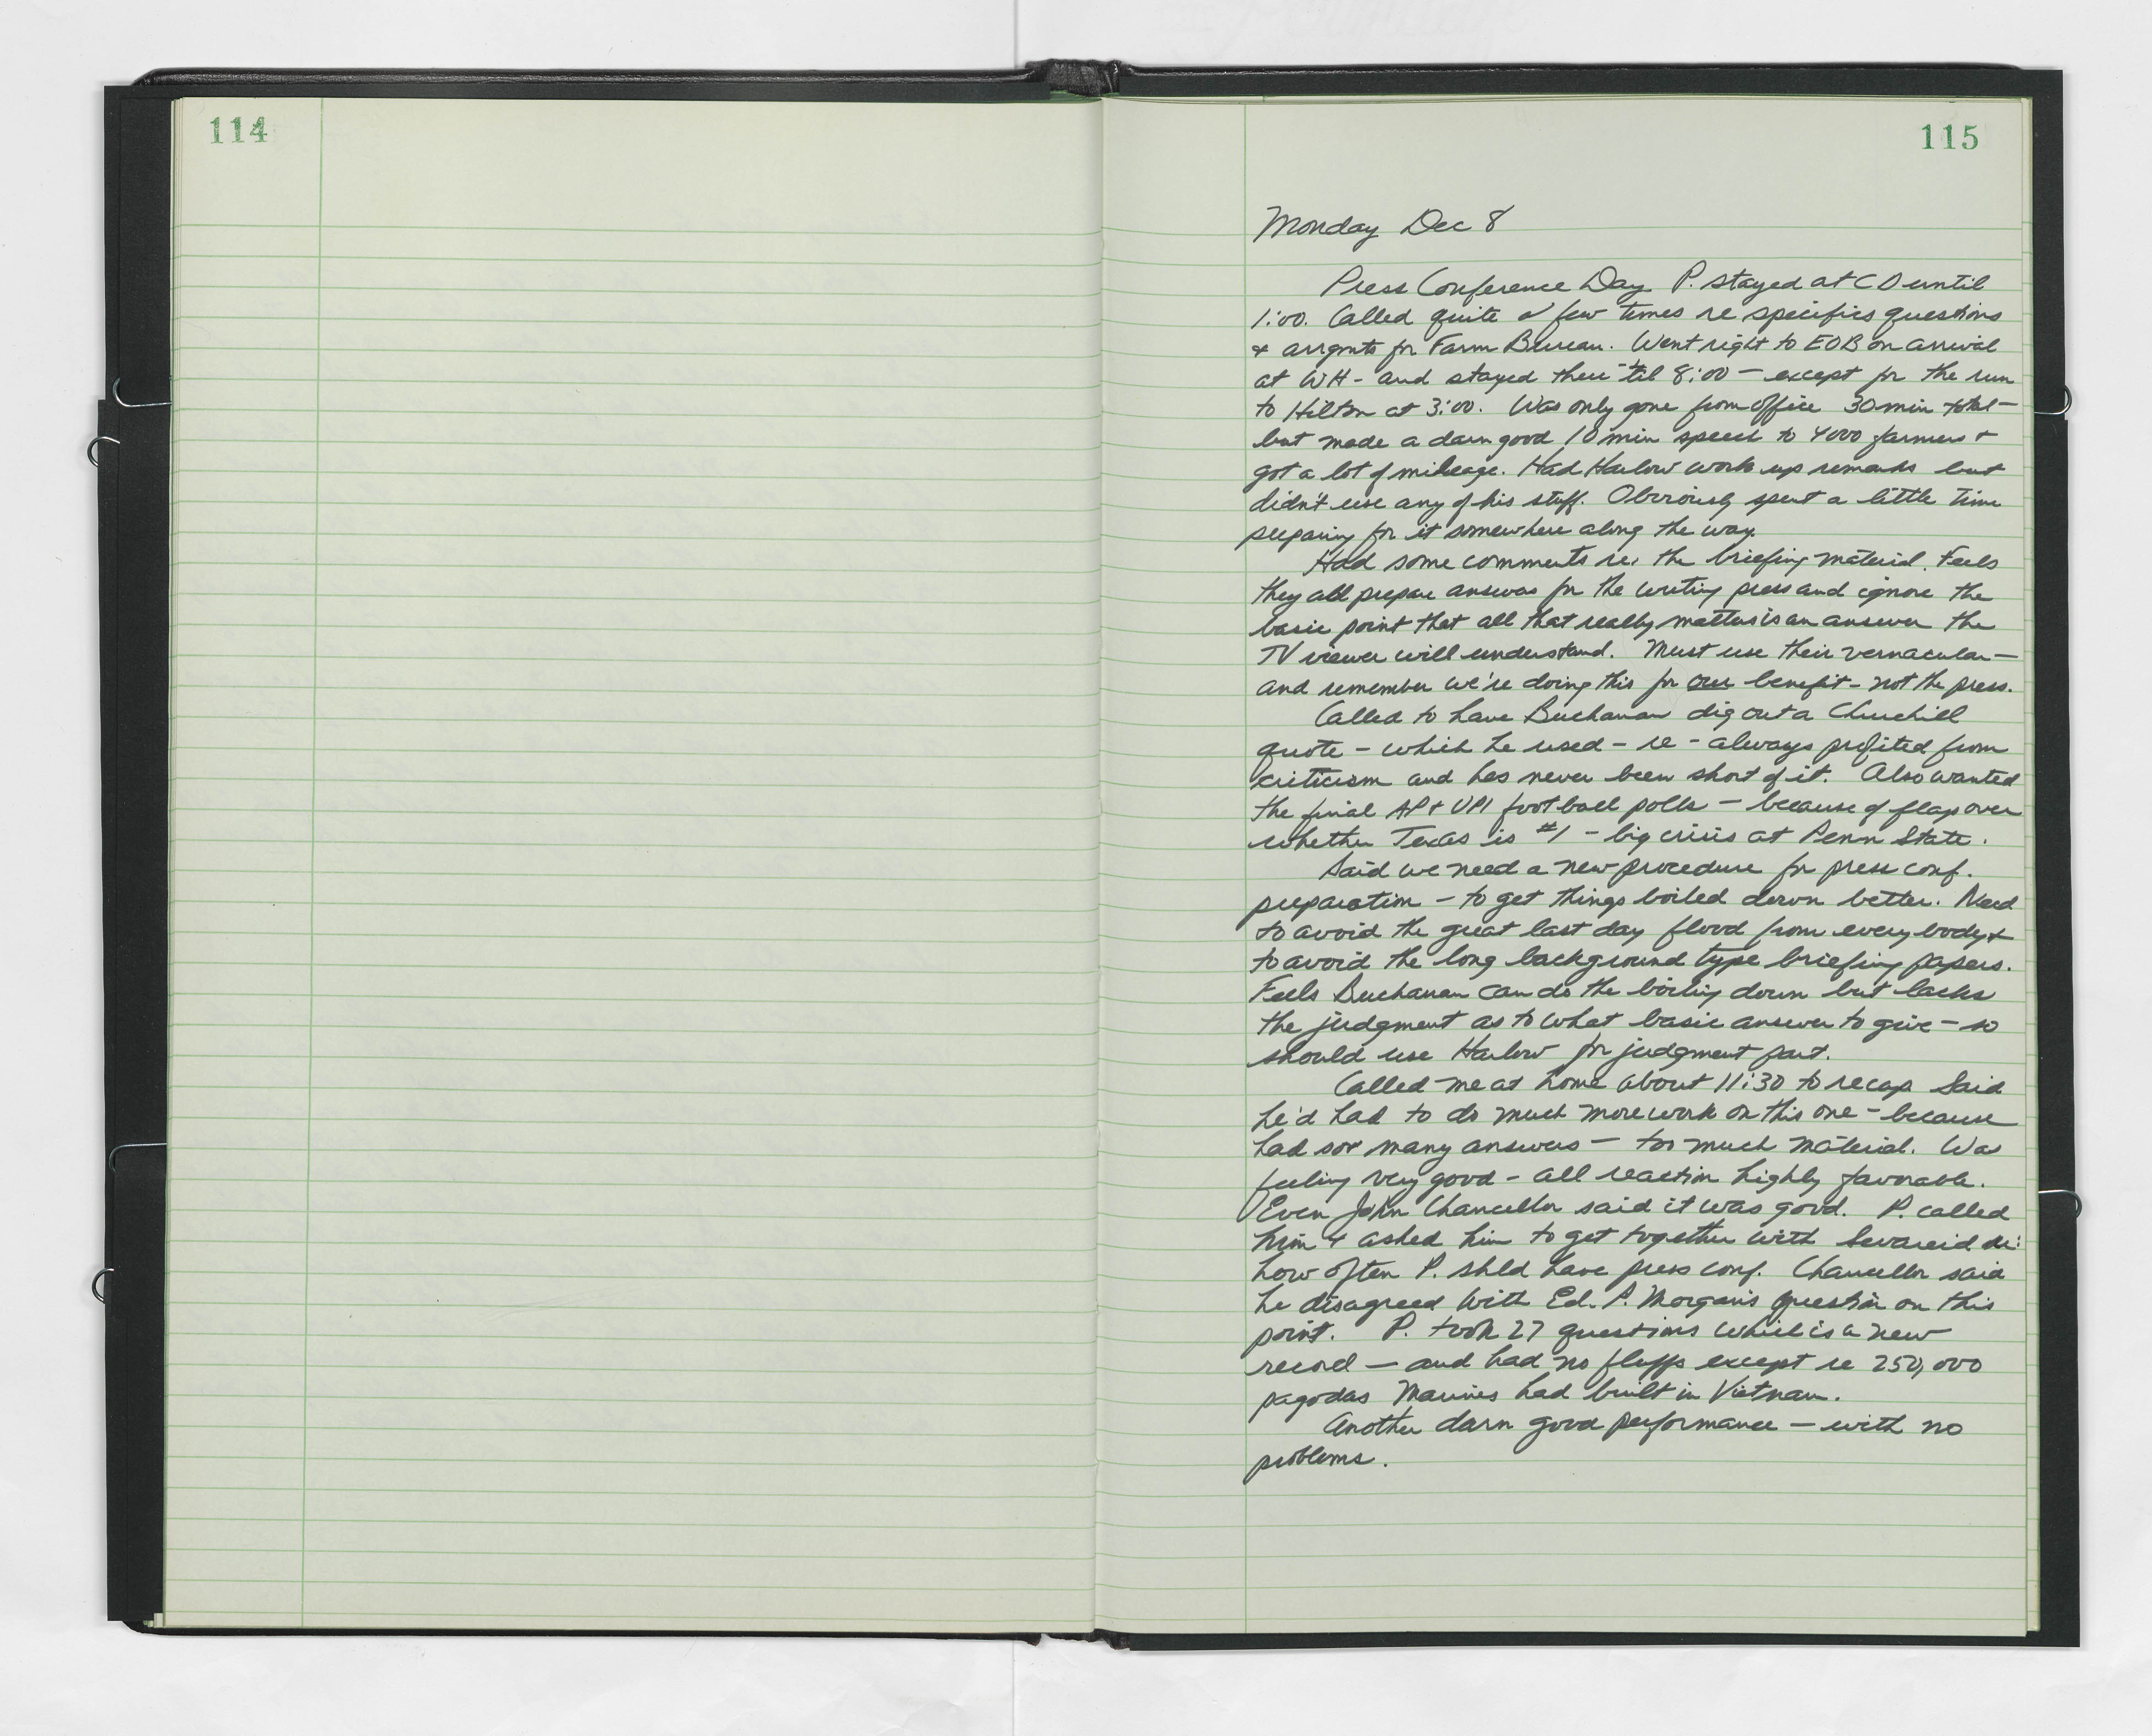 114
115
Monday Dec 8
Press Conference Day P. stayed at CD until
1:00. Called quite a few times re specifics questions
& arrgmts for Farm Bureau. Went right to EOB on arrival
at WH - and stayed there 'til 8:00 - except for the run
to Hilton at 3:00. Was only gone from office 30 min total -
but made a darn good 10 min speech to 4000 farmers +
got a lot of mileage. Had Harlow work up remarks but
didn't use any of his stuff. Obviously spent a little time
preparing for it somewhere along the way.
Had some comments re. the briefing material. Feels
they all prepare answers for the writing press and ignore the
basic point that all that really matters is an answer the
TV viewer will understand. Must use their vernacular -
and remember we're doing this for our benefit - not the press.
Called to have Buchanan dig out a Churchill
quote - which he used - re - always profited from
criticism and has never been short of it. Also wanted
the final AP + UPI football polls - because of flap over
whether Texas is #1 - big crisis at Penn State.
Said we need a new procedure for press conf.
preparation - to get things boiled down better. Need
to avoid the great last day flood from everybody +
to avoid the long background type briefing papers.
Feels Buchanan can do the boiling down but lacks
the judgment as to what basic answer to give - so
should use Harlow for judgment part.
Called me at home about 11:30 to recap Said
he'd had to do much more work on this one - because
had so many answers - too much material. Was
feeling very good - all reaction highly favorable.
Even John Chancellor said it was good. P. called
him + asked him to get together with Sevareid
how often P. shld have press conf. Chancellor said
he disagreed with Ed. P. Morgan's question on this
point. P. took 27 questions which is a new
record - and had no fluffs except re 250,000
pagodas Marines had built in Vietnam.
Another darn good performance - with no
problems.